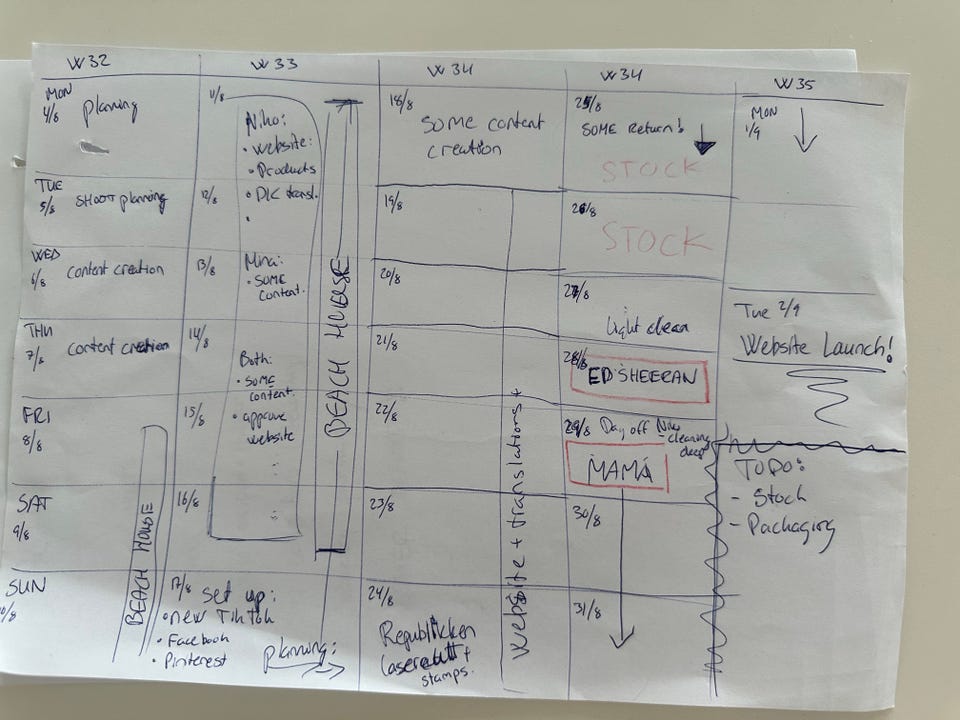 W32
MON
4/8
planning
TUE
5/8
SHOOT planning
WED
6/8
content creation
THU
7/8
content creation
FRI
8/8
SAT
9/8
SUN
10/8
BEACH HOUSE
W33
11/8
Niko:
• website:
• Products
• DK transl.
•
12/8
13/8
Mina:
• SOME
content.
14/8
Both:
• SOME
content.
• approve
website
15/8
16/8
BEACH HOUSE
17/8 set up:
• new TikTok
• Facebook
• Pinterest
planning:
W34
18/8
SOME content
creation
19/8
20/8
21/8
22/8
23/8
24/8
Republikken
lasercutt +
stamps.
Website + translations +
W34
25/8
SOME Return!
STOCK
26/8
STOCK
27/8
Light clean
28/8
ED SHEERAN
29/8 Day off Niko
cleaning
deep
MAMA
30/8
31/8
W35
MON
1/9
Tue 2/9
Website Launch!
TODO:
- Stock
- Packaging